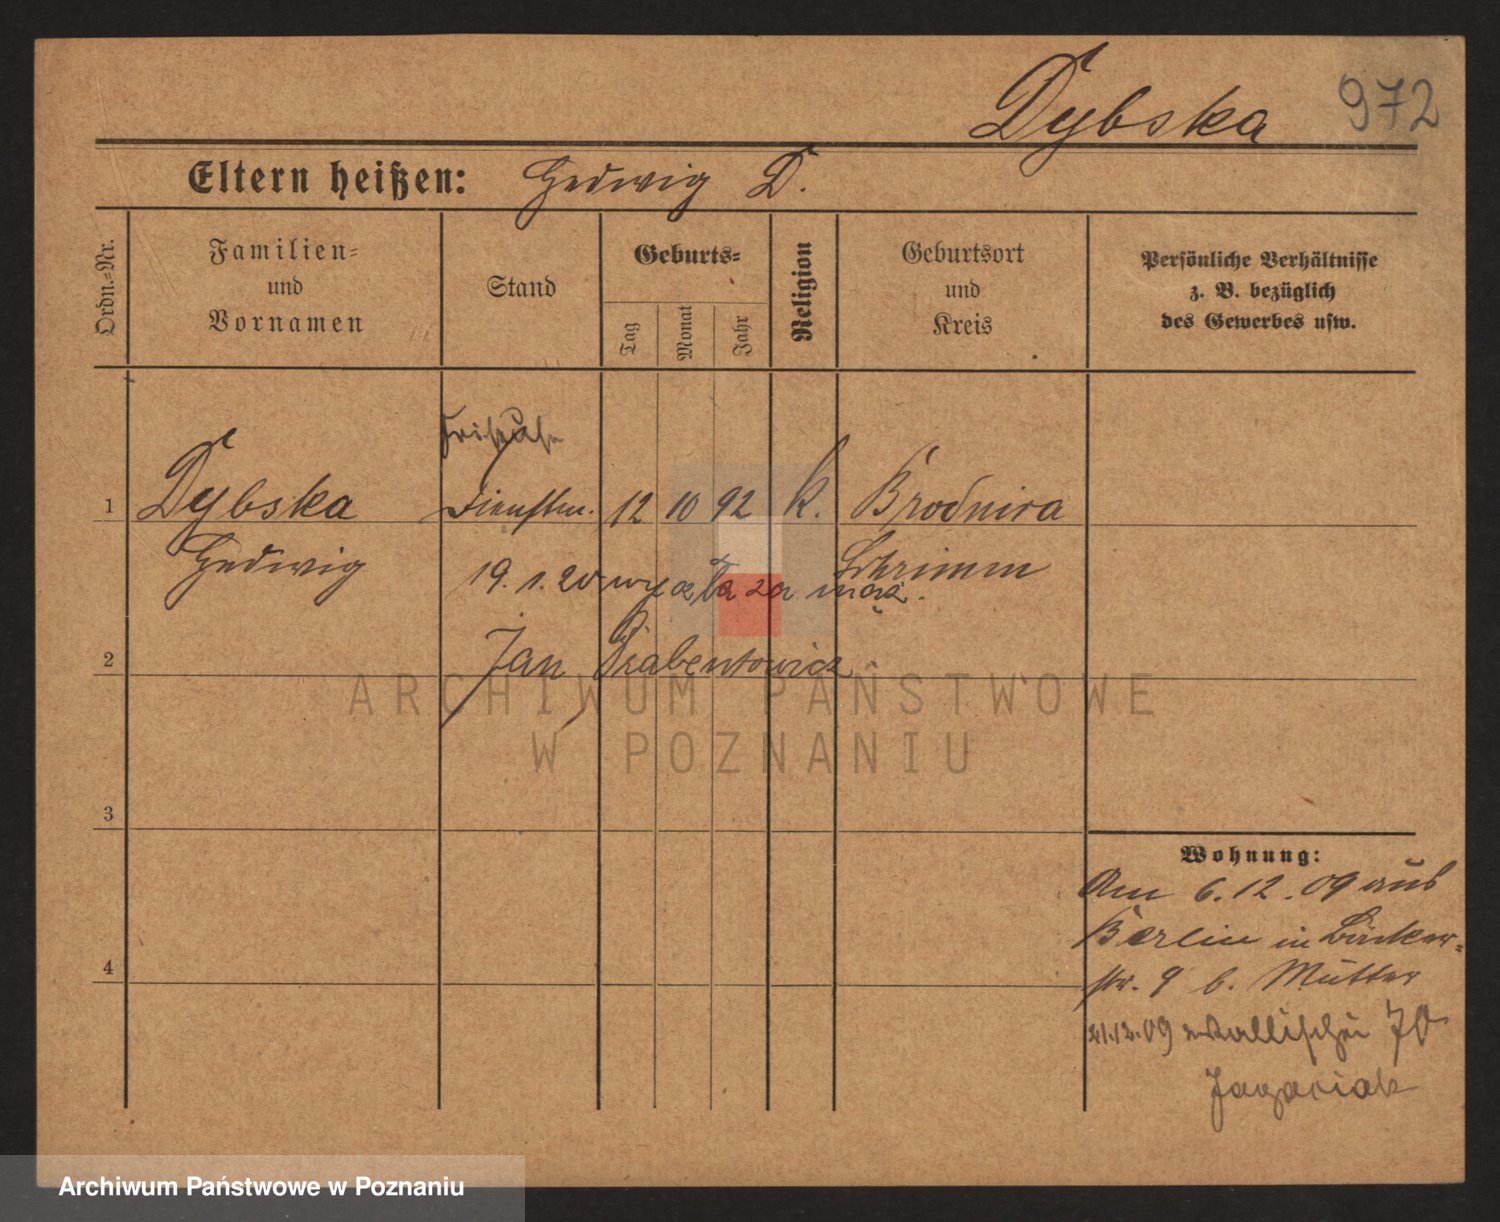 Dybska 972
Eltern heißen: Hedwig D.
Ordn.-Nr.
Familien-
und
Vornamen
Stand
Geburts-
Tag
Monat
Jahr
Religion
Geburtsort
und
Kreis
Persönliche Verhältnisse
z. B. bezüglich
des Gewerbes usw.
1 Dybska Dienstm. 12 10 92 k. Brodnica
Hedwig Schrimm
19. 1. 20 wyszła za mąż.
2 Jan
3
4
ARCHIWUM PAŃSTWOWE
W POZNANIU
Wohnung:
Am 6.12.09 aus
Berlin in Bäcker-
str. 9 b. Mutter
21.12.09 Wallischei 70
Jagaciak
Archiwum Państwowe w Poznaniu